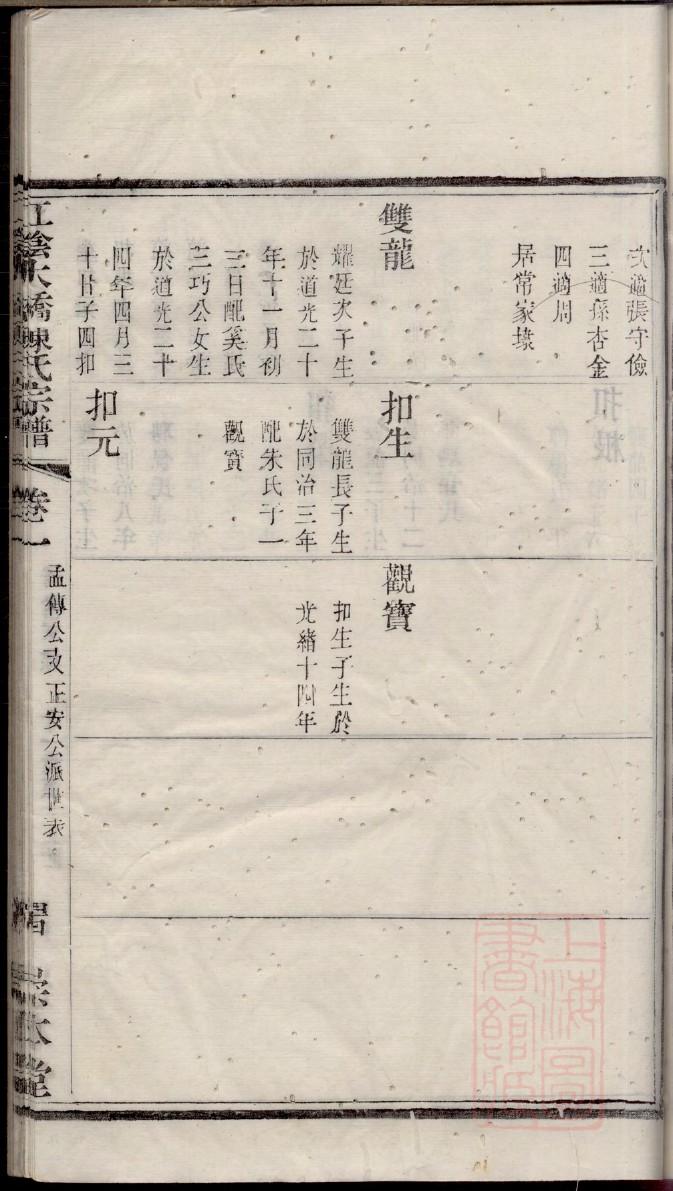 次適張守儉
三適孫杏金
四適周
居常家埭
雙龍
耀廷次子生
於道光二十
年十一月初
三日配奚氏
三巧公女生
於道光二十
四年四月三
十廿子四扣
扣生
雙龍長子生
於同治三年
配朱氏子一
觀寶
扣元
觀寶
扣生子生於
光緒十四年
江陰大橋陳氏宗譜
卷一
孟傳公支正安公派世表
宗本堂
上海圖
書館藏